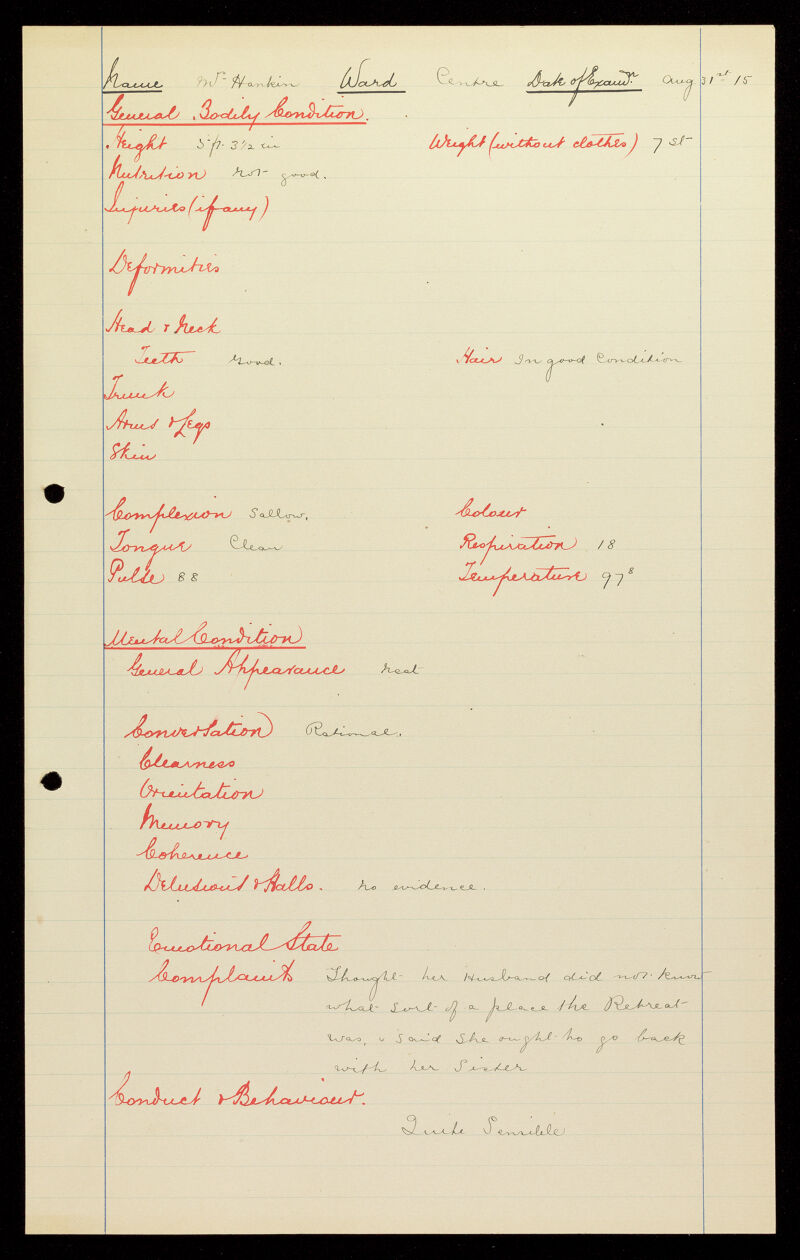 Name Mrs Hankin Ward Centre Date of Examn. Aug 31st 15
General Bodily Condition.
Height 5 ft. 3½ in Weight (without clothes) 7 st
Nutrition not good.
Injuries (if any)
Deformities
Head & Neck
Teeth Good. Hair In good Condition
Trunk
Arms & Legs
Skin
Complexion Sallow. Colour
Tongue Clean Respiration 18
Pulse 88 Temperature 97⁸
Mental Condition
General Appearance Neat
Conversation Rational.
Clearness
Orientation
Memory
Coherence
Delusions & Halls. no evidence.
Emotional State
Complaints Thought her Husband did not know
what sort of a place the Retreat
was, & said she ought to go back
with her Sister
Conduct & Behaviour.
Quite Sensible